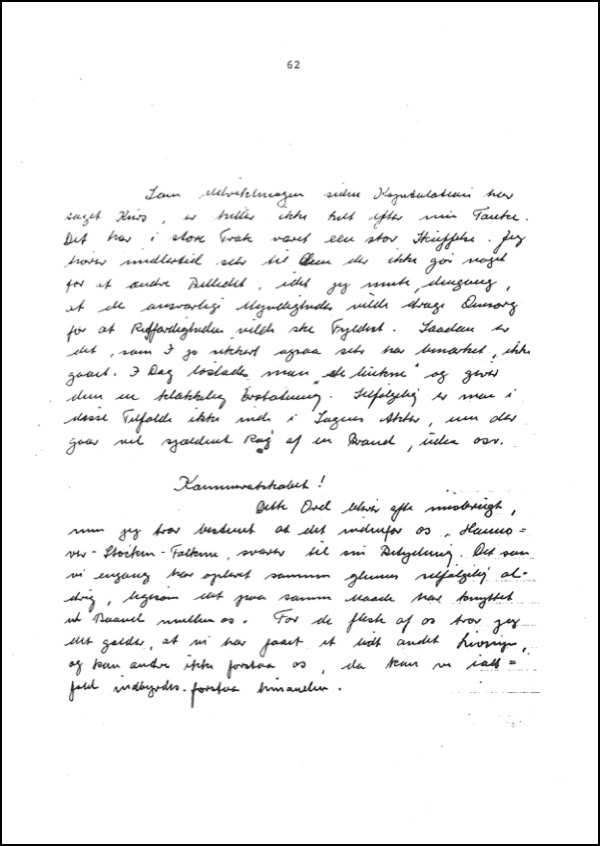 62
Som Udviklingen siden Kapitulationen har
taget Kurs, er heller ikke helt efter min Tanke.
Det har i store Træk været een stor Skuffelse. Jeg
hører imidlertid selv til dem der ikke gør noget
for at ændre Billedet, idet jeg mente, dengang,
at de ansvarlige Myndigheder vilde drage Omsorg
for at Retfærdigheden vilde ske Fyldest. Saadan er
det, som I jo sikkert ogsaa selv har bemærket, ikke
gaaet. I Dag løslader man "de" og giver
dem en klækkelig Erstatning. Selvfølgelig er man i
disse Tilfælde ikke inde i Sagens Akter, men der
gaar vel sjældent Røg af en Brand, uden osv.
Kammeratskabet!
Dette Ord bliver ofte misbrugt,
men jeg tror bestemt at det indenfor os "Hanno=
ver-Stöcken-Folkene, svarer til sin Betydning. Det som
vi engang har oplevet sammen glemmes selvfølgelig al-
drig, ligesom det paa samme Maade har knyttet
et Baand mellem os. For de fleste af os tror jeg
det gælder, at vi har faaet et lidt andet Livssyn,
og kan andre ikke forstaa os, da kan vi ialt=
fald indbyrdes forstaa hinanden.